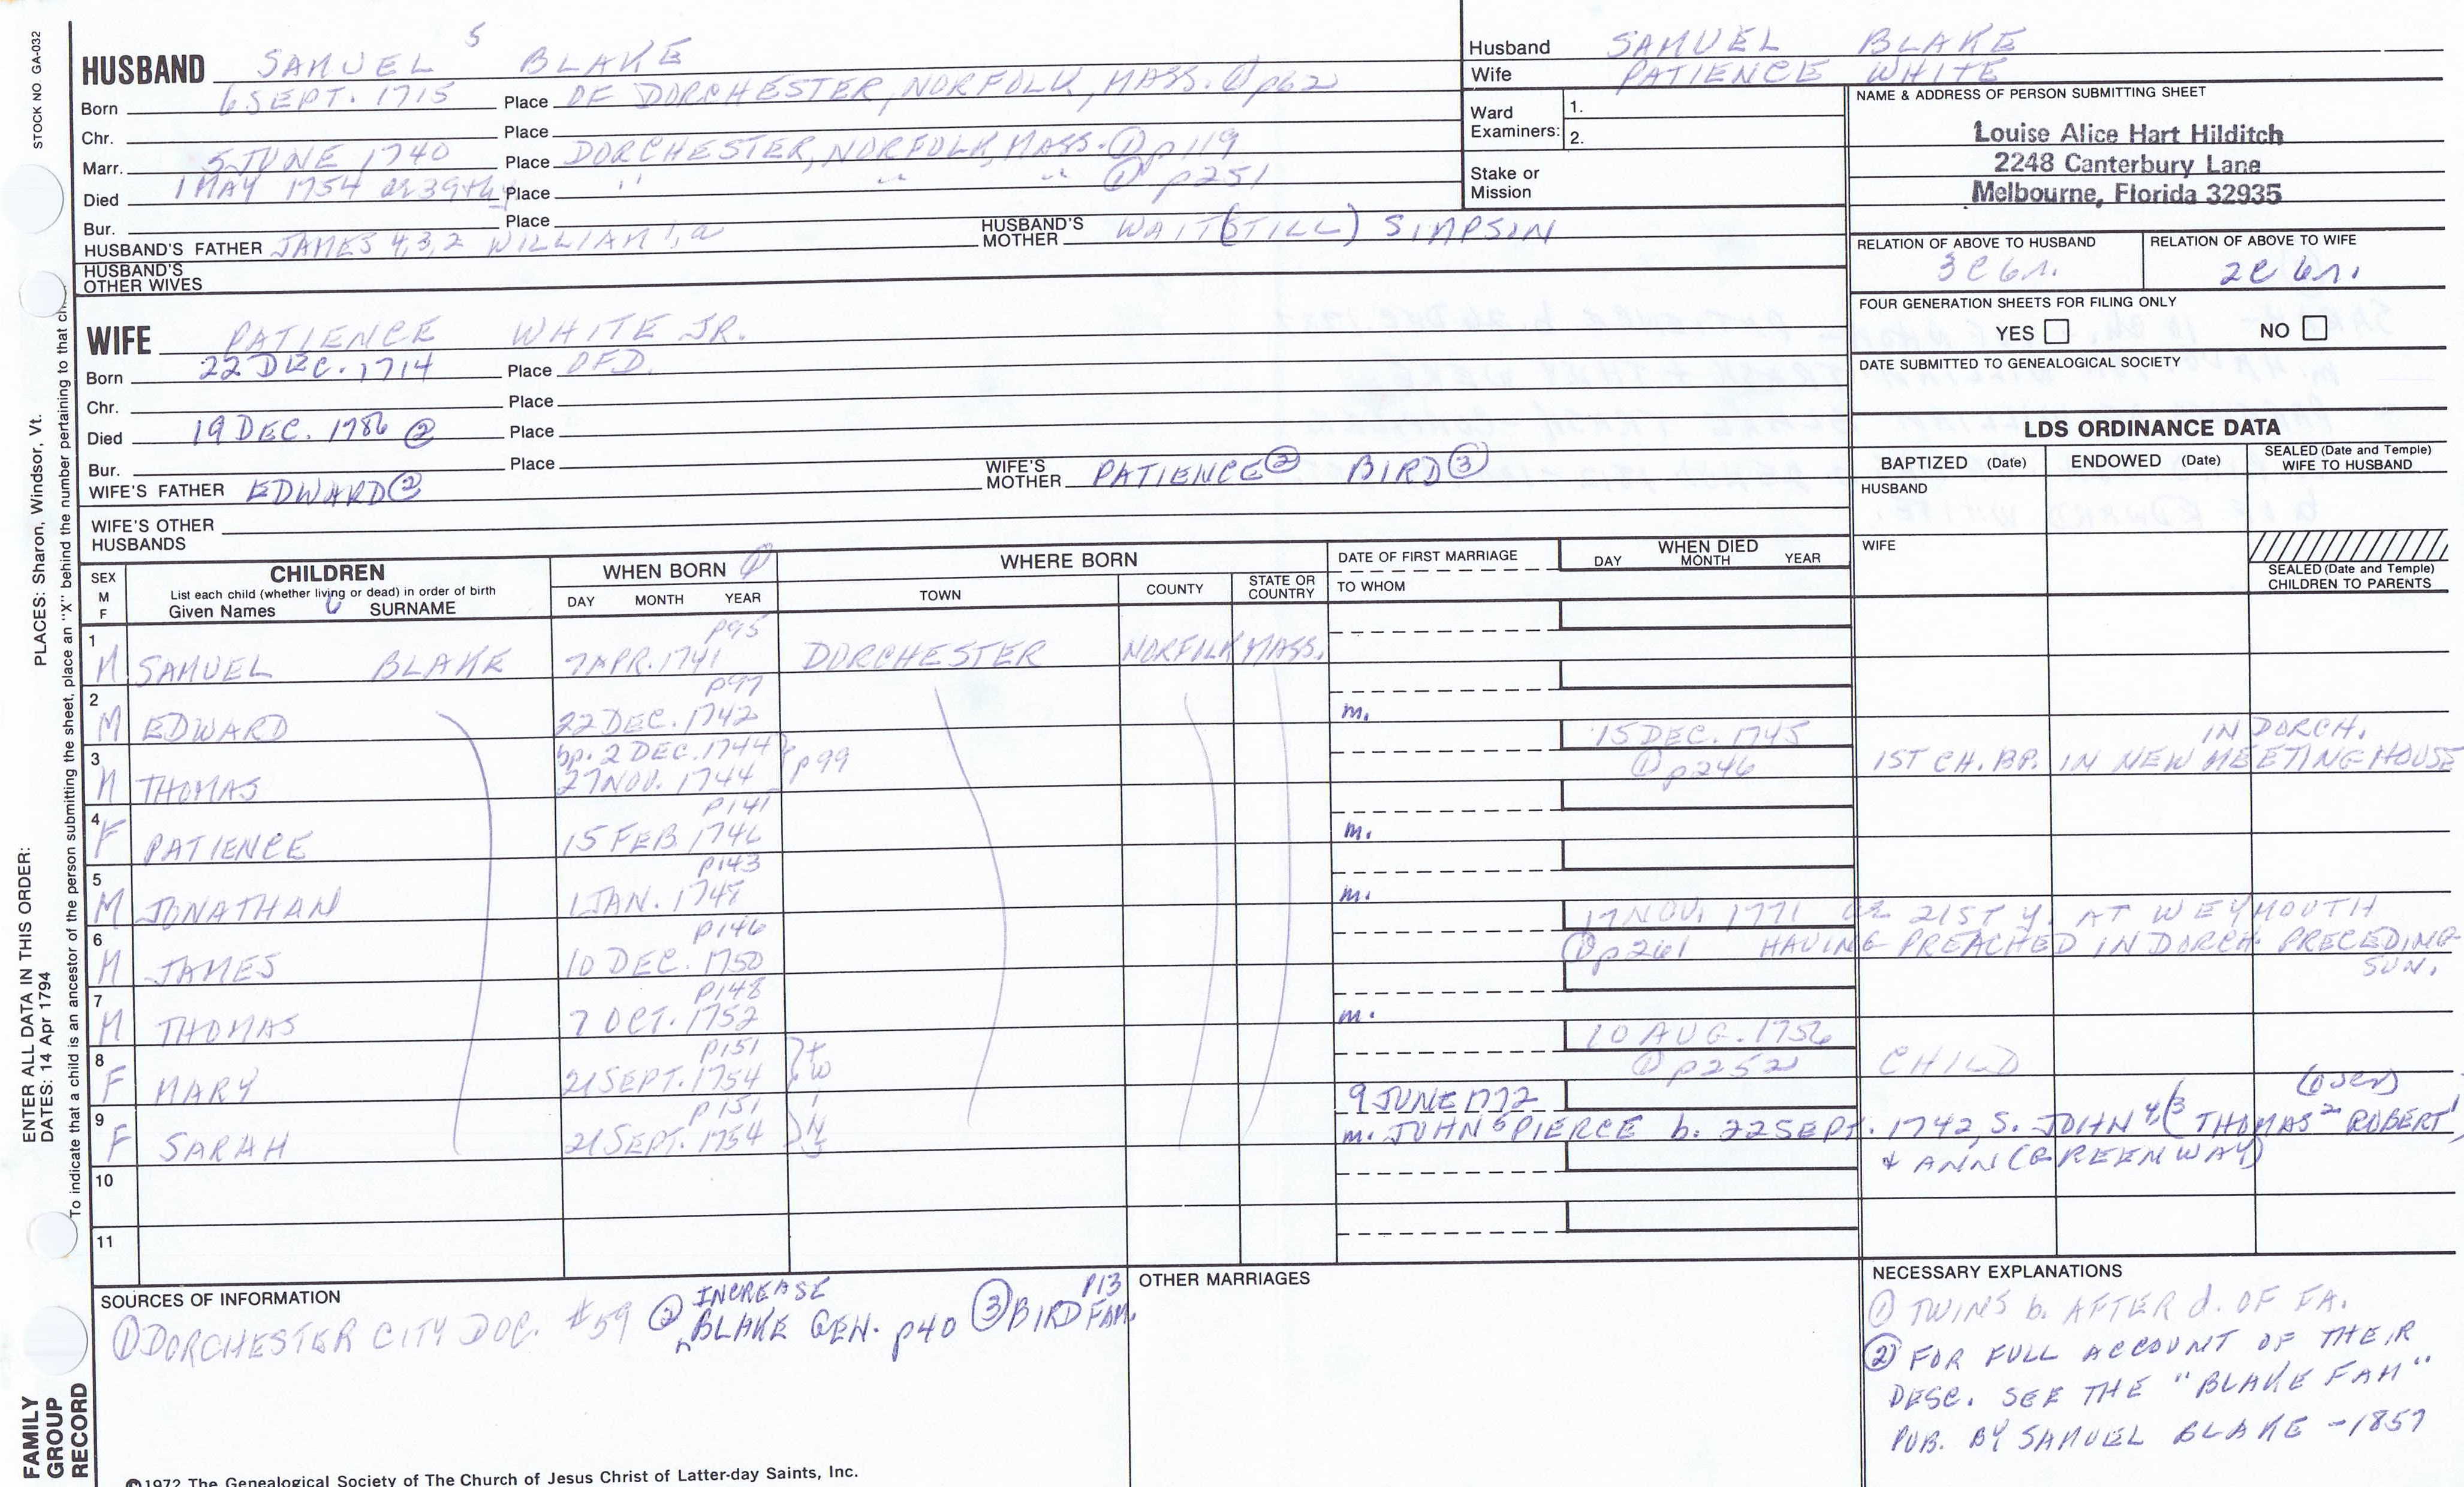 STOCK NO. GA-032
PLACES: Sharon, Windsor, Vt.
ENTER ALL DATA IN THIS ORDER:
DATES: 14 Apr 1794
To indicate that a child is an ancestor of the person submitting the sheet, place an "X" behind the number pertaining to that
FAMILY
GROUP
RECORD
HUSBAND SAMUEL 5 BLAKE
Born 6 SEPT. 1715 Place OF DORCHESTER, NORFOLK, MASS. ① p62
Chr. Place
Marr. 5 JUNE 1740 Place DORCHESTER, NORFOLK, MASS. ① p119
Died 1 MAY 1754 ae 39th y Place " " " ① p251
Bur. Place
HUSBAND'S FATHER JAMES 4,3,2 WILLIAM 1, a HUSBAND'S MOTHER WAIT(STILL) SIMPSON
HUSBAND'S OTHER WIVES
WIFE PATIENCE WHITE JR.
Born 22 DEC. 1714 Place OF D.
Chr. Place
Died 19 DEC. 1786 ② Place
Bur. Place
WIFE'S FATHER EDWARD ② WIFE'S MOTHER PATIENCE ② BIRD ③
WIFE'S OTHER HUSBANDS
Husband SAMUEL BLAKE
Wife PATIENCE WHITE
Ward Examiners: 1.
2.
Stake or Mission
NAME & ADDRESS OF PERSON SUBMITTING SHEET
Louise Alice Hart Hilditch
2248 Canterbury Lane
Melbourne, Florida 32935
RELATION OF ABOVE TO HUSBAND RELATION OF ABOVE TO WIFE
3C 6r. 2C 6r.
FOUR GENERATION SHEETS FOR FILING ONLY
YES NO
DATE SUBMITTED TO GENEALOGICAL SOCIETY
LDS ORDINANCE DATA
BAPTIZED (Date) ENDOWED (Date) SEALED (Date and Temple) WIFE TO HUSBAND
HUSBAND
WIFE
SEALED (Date and Temple) CHILDREN TO PARENTS
SEX M F CHILDREN WHEN BORN ① WHERE BORN DATE OF FIRST MARRIAGE WHEN DIED
List each child (whether living or dead) in order of birth
Given Names SURNAME DAY MONTH YEAR TOWN COUNTY STATE OR COUNTRY TO WHOM DAY MONTH YEAR
p95
1 M SAMUEL BLAKE 7 APR. 1741 DORCHESTER NORFOLK MASS.
p97
2 M EDWARD 22 DEC. 1742 m.
bp. 2 DEC. 1744 15 DEC. 1745 IN DORCH.
3 M THOMAS 27 NOV. 1744 p99 ① p246 1ST CH. BP. IN NEW MEETING HOUSE
p141
4 F PATIENCE 15 FEB 1746 m.
p143
5 M JONATHAN 1 JAN. 1748 m.
p146 17 NOV. 1771 ae 21ST y. AT WEYMOUTH
6 M JAMES 10 DEC. 1750 ① p261 HAVING PREACHED IN DORCH. PRECEDING SUN.
p148
7 M THOMAS 7 OCT. 1752 m.
p151 10 AUG. 1756
8 F MARY 21 SEPT. 1754 tw ① p252 CHILD
p151 9 JUNE 1772
9 F SARAH 21 SEPT. 1754 m. JOHN 5 PIERCE b. 22 SEPT. 1742, S. JOHN 4 (3 THOMAS 2 ROBERT 1
& ANN (GREENWAY)
10
11
SOURCES OF INFORMATION
① DORCHESTER CITY DOC. #59 ② INCREASE BLAKE GEN. p40 ③ BIRD FAM. p13
OTHER MARRIAGES
NECESSARY EXPLANATIONS
① TWINS b. AFTER d. OF FA.
② FOR FULL ACCOUNT OF THEIR
DESC. SEE THE "BLAKE FAM"
PUB. BY SAMUEL BLAKE - 1857
©1972 The Genealogical Society of The Church of Jesus Christ of Latter-day Saints, Inc.